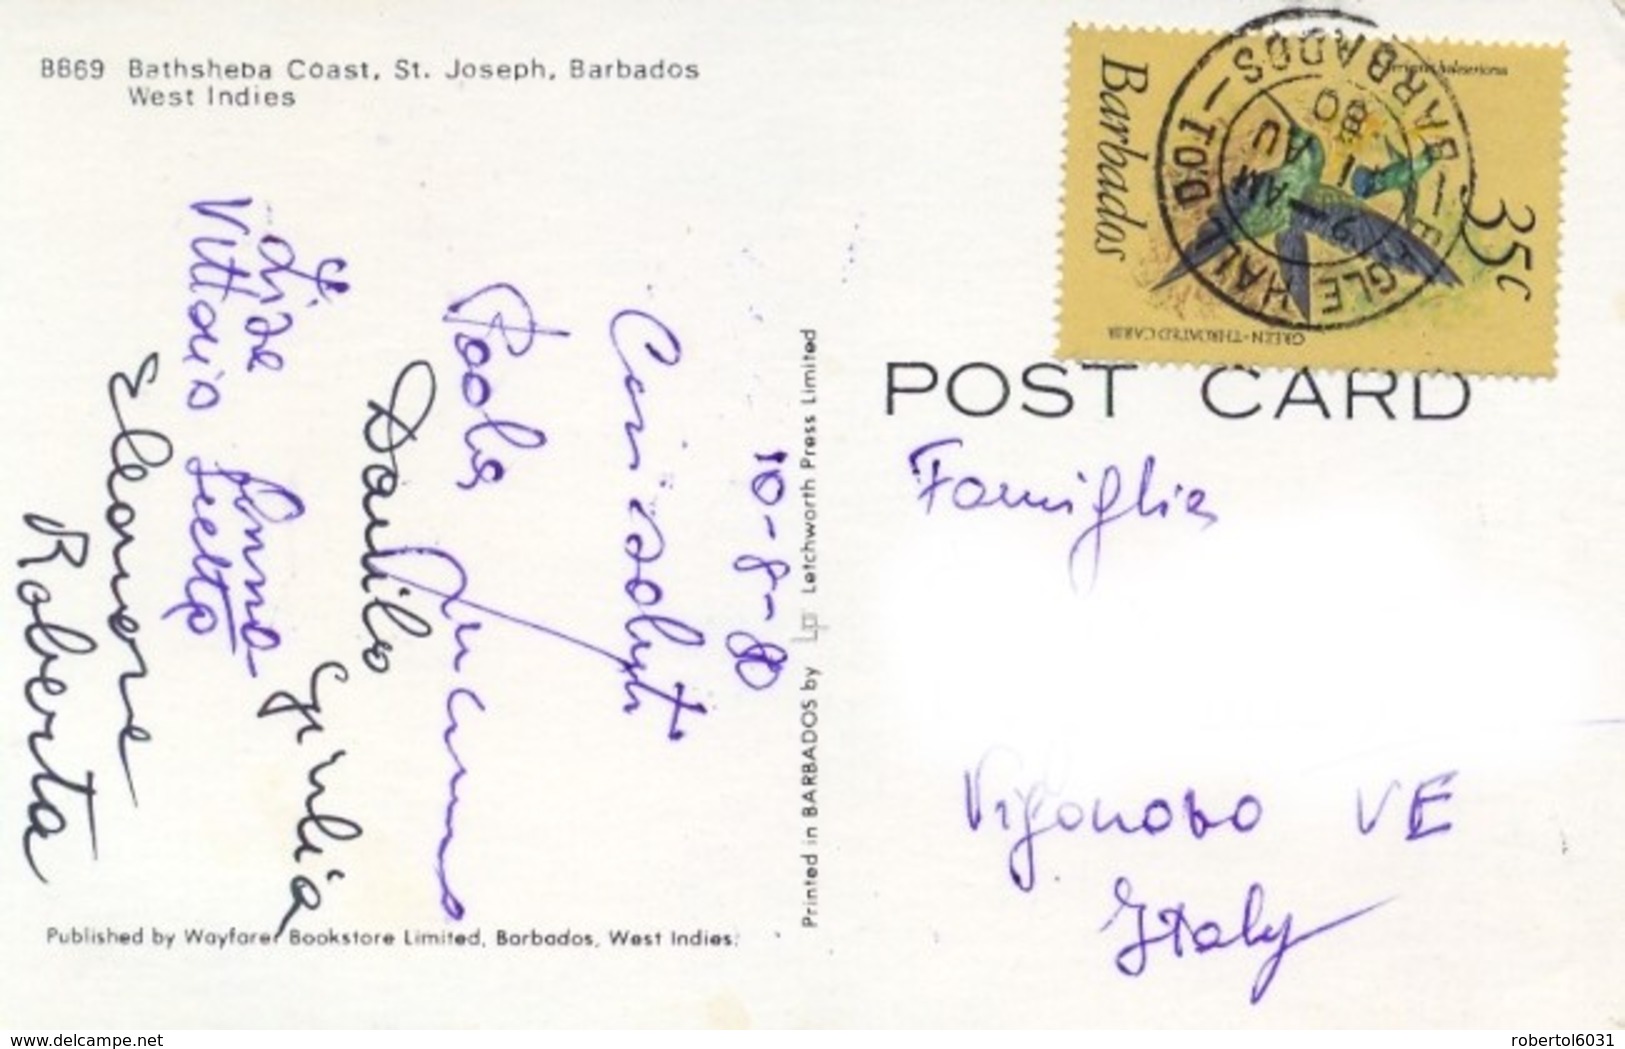 B869 Bathsheba Coast, St. Joseph, Barbados
West Indies
10-8-80
Cari saluti
Paola Luciano
Danilo
Giulia
Lisa
Vittorio
Eleonora
Roberta
Published by Wayfarer Bookstore Limited, Barbados, West Indies.
Printed in BARBADOS by Lp Letchworth Press Limited
Barbados
35c
GREEN-THROATED CARIB
EAGLE HALL
BARBADOS
9 AM
1 AU
80
POST CARD
Famiglia
Vigonovo VE
Italy
www.delcampe.net
robertol6031